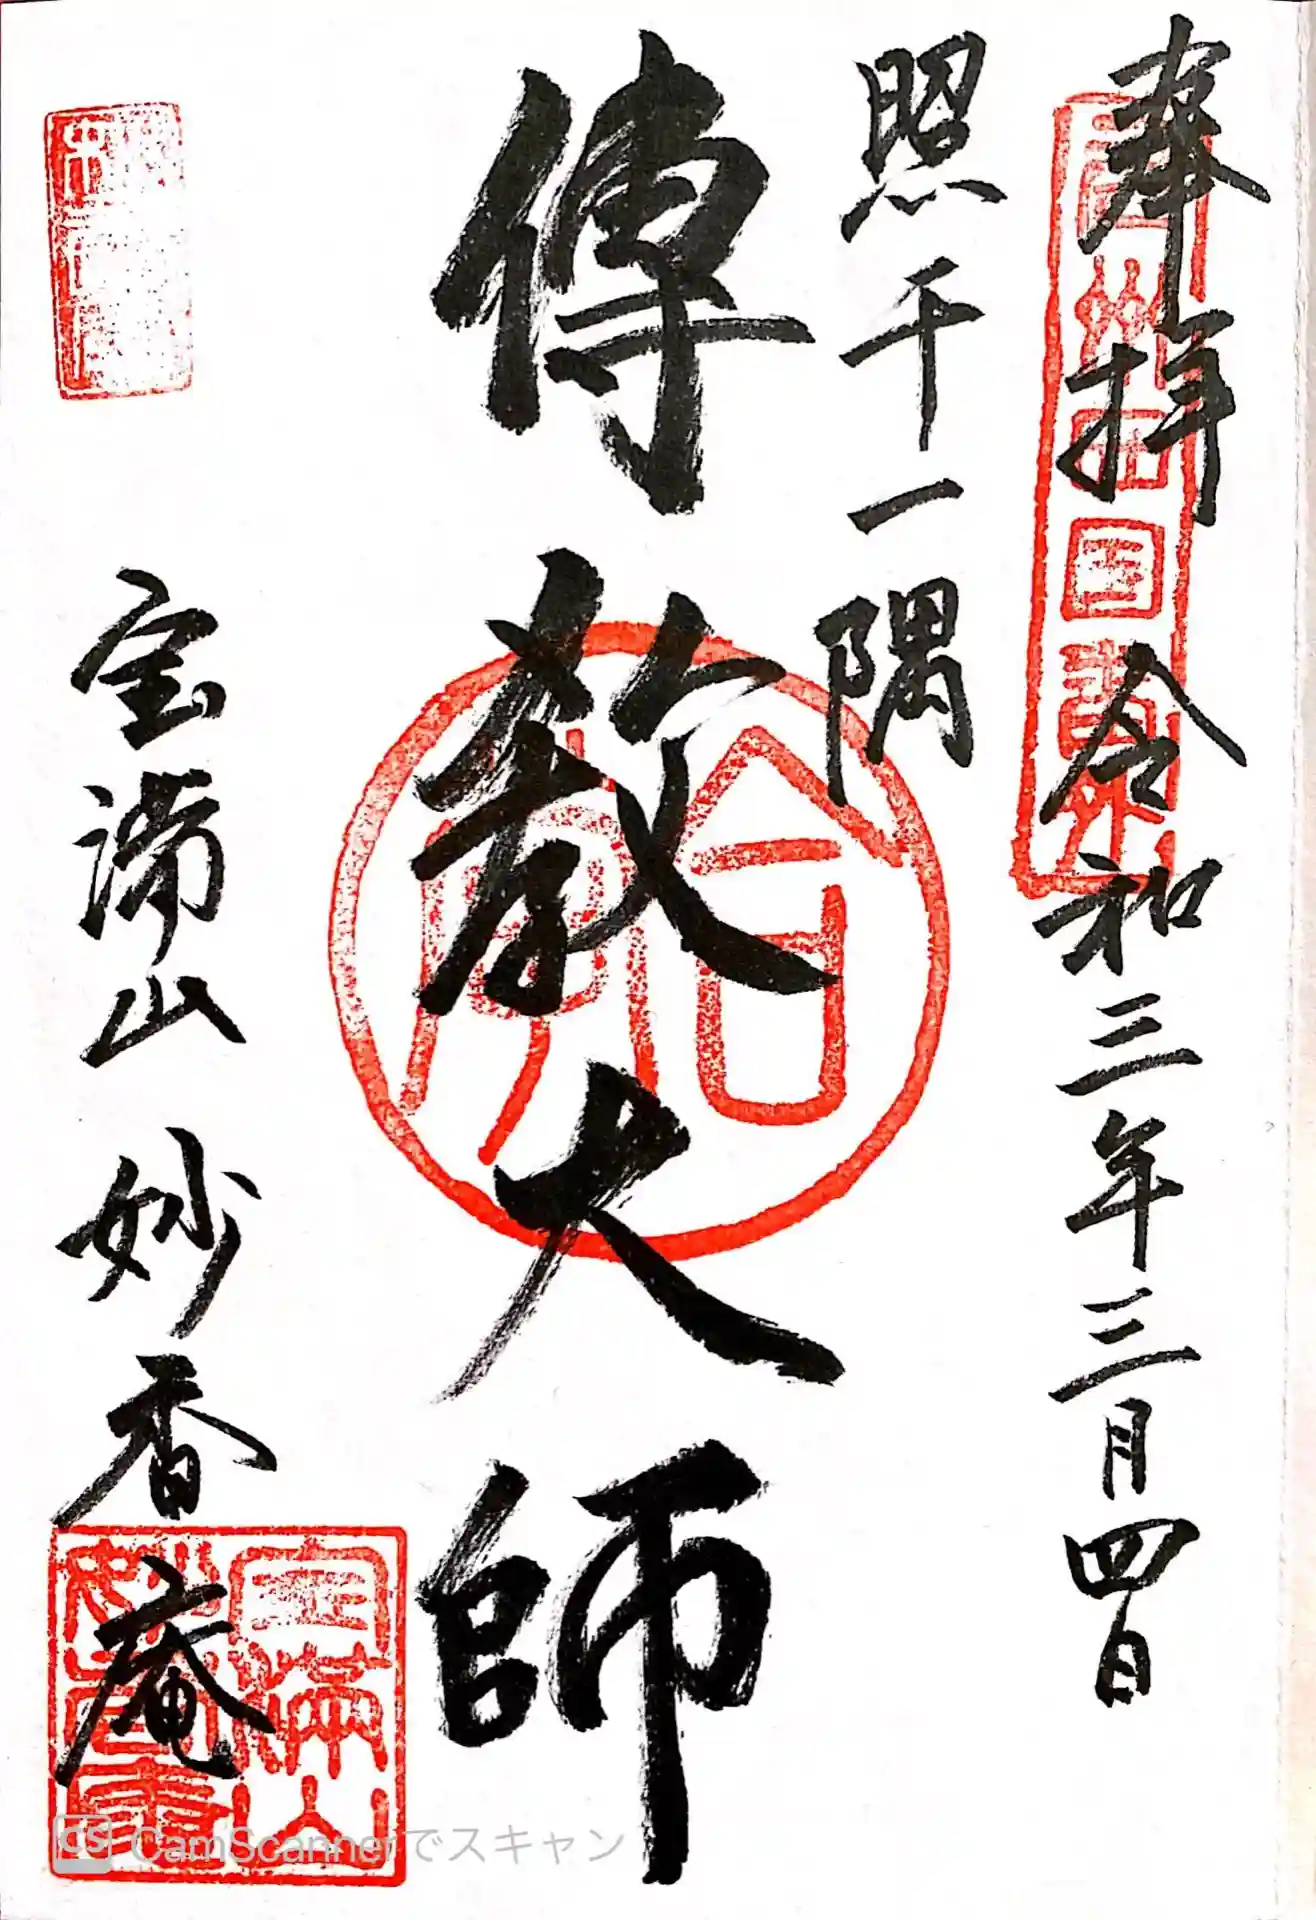 奉拝 令和三年三月四日
照千一隅
傳教大師
宝満山 妙香庵
宝満山
妙香庵
CS CamScannerでスキャン